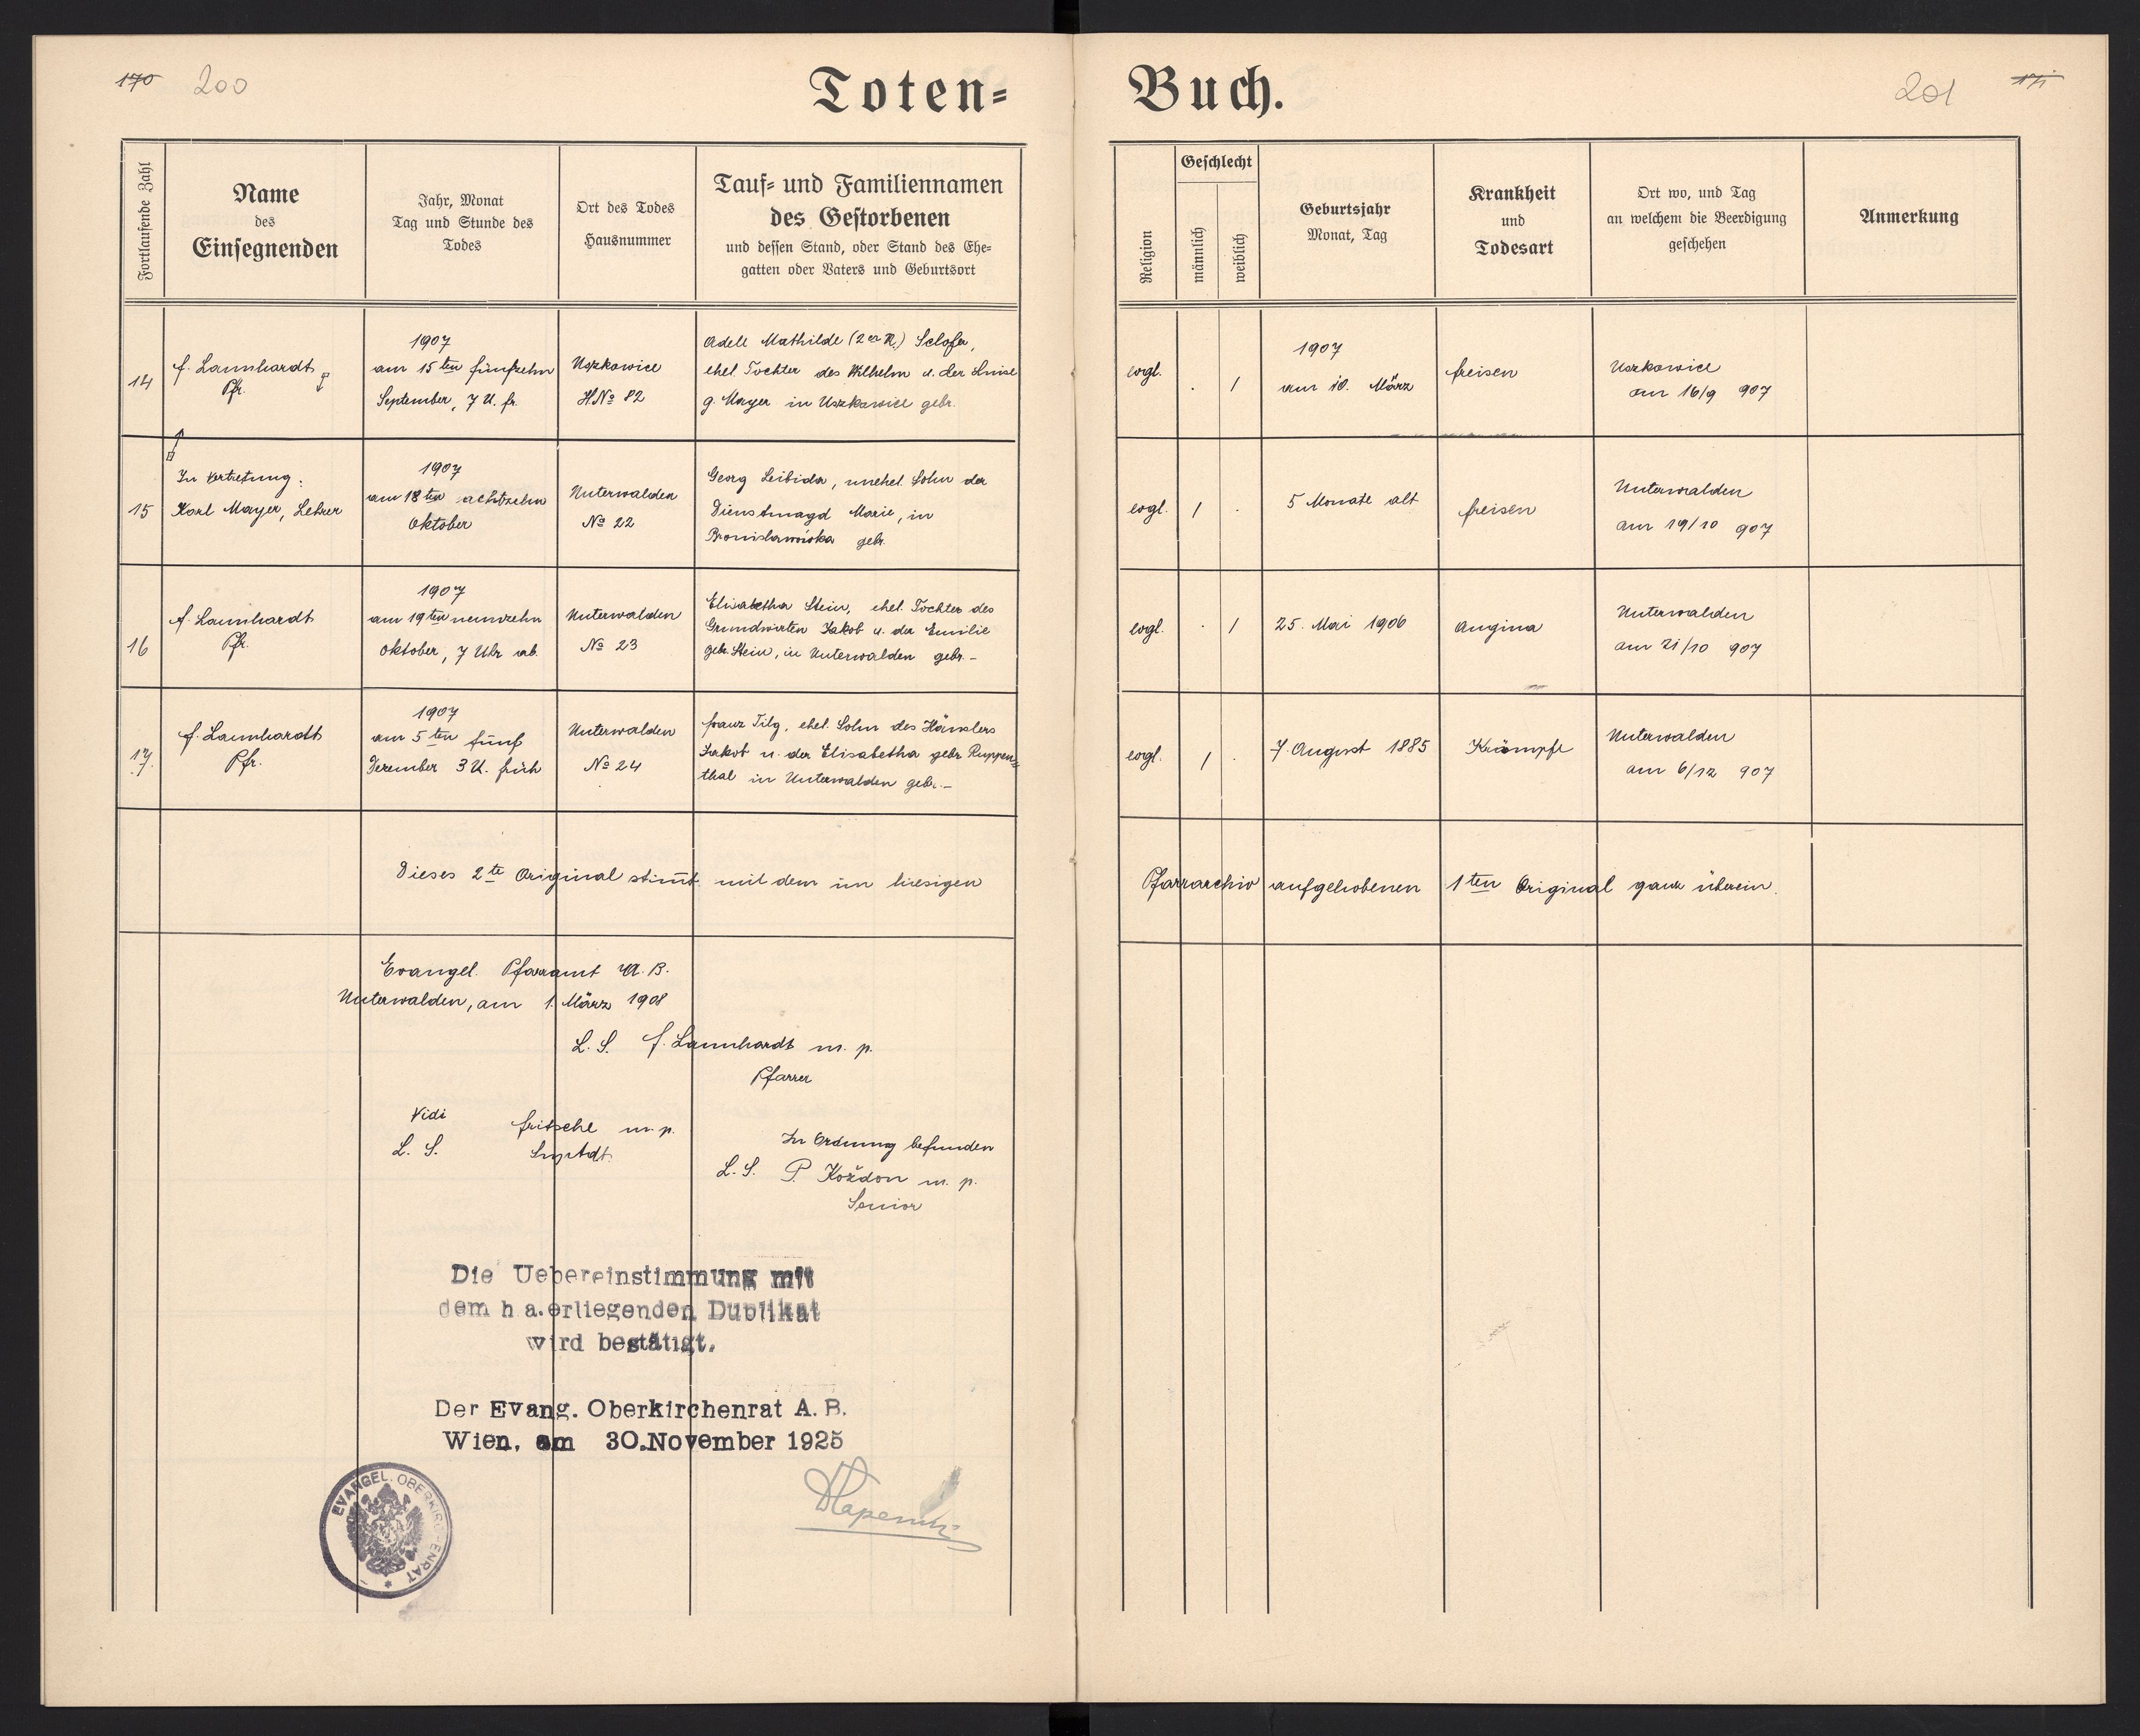 170 200
Toten= Buch.
201 171
Fortlaufende Zahl
Name
des
Einsegnenden
Jahr, Monat
Tag und Stunde des
Todes
Ort des Todes
Hausnummer
Tauf= und Familiennamen
des Gestorbenen
und dessen Stand, oder Stand des Ehe=
gatten oder Vaters und Geburtsort
Religion
Geschlecht
männlich
weiblich
Geburtsjahr
Monat, Tag
Krankheit
und
Todesart
Ort wo, und Tag
an welchem die Beerdigung
geschehen
Anmerkung
14
f. Lannhardt
Pfr.
1907
am 15ten fünfzehn
September, 7 U. fr.
Uszkowice
H.No 82
Adele Mathilde (2er N.)
ehel. Tochter des Wilhelm u. der Luise
g. Mayer in Uszkowice gebr.
evgl.
. 1
1907
am 10. März
freisen
Uszkowice
am 16/9 907
15
In Vertretung:
Karl Mayer, Lehrer
1907
am 18ten achtzehn
Oktober
Unterwalden
No 22
Georg Leibida, unehel. Sohn der
Dienstmagd Marie, in
Bronislawówka geb.
evgl.
1 .
5 Monate alt
freisen
Unterwalden
am 19/10 907
16
f. Lannhardt
Pfr.
1907
am 19ten neunzehn
Oktober, 7 Uhr ab.
Unterwalden
No 23
Elisabetha Stein, ehel. Tochter des
Grundwirten Jakob u. der Emilie
geb. Stein, in Unterwalden gebr.-
evgl.
. 1
25. Mai 1906
Angina
Unterwalden
am 21/10 907
17.
f. Lannhardt
Pfr.
1907
am 5ten fünf
Dezember 3 U. früh
Unterwalden
No 24
Franz Tilg, ehel. Sohn des Häuslers
Jakob u. der Elisabetha gebr Ruppen=
thal in Unterwalden gebr.-
evgl.
1 .
7. August 1885
Krämpfe
Unterwalden
am 6/12 907
Dieses 2te Original stimt mit dem im hiesigen Pfarrarchiv aufgehobenen 1ten Original ganz überein.
Evangel. Pfarramt A. B.
Unterwalden, am 1. März 1908
L. S. f. Lannhardt m. p.
Pfarrer
Vidi
L. S.
Fritsche m. p.
Suptdt.
In Ordnung befunden
L. S. P. Koždon m. p.
Senior
Die Uebereinstimmung mit
dem h a. erliegenden Duplikat
wird bestätigt.
Der Evang. Oberkirchenrat A. B.
Wien, am 30. November 1925
EVANGEL. OBERKIRCHENRAT